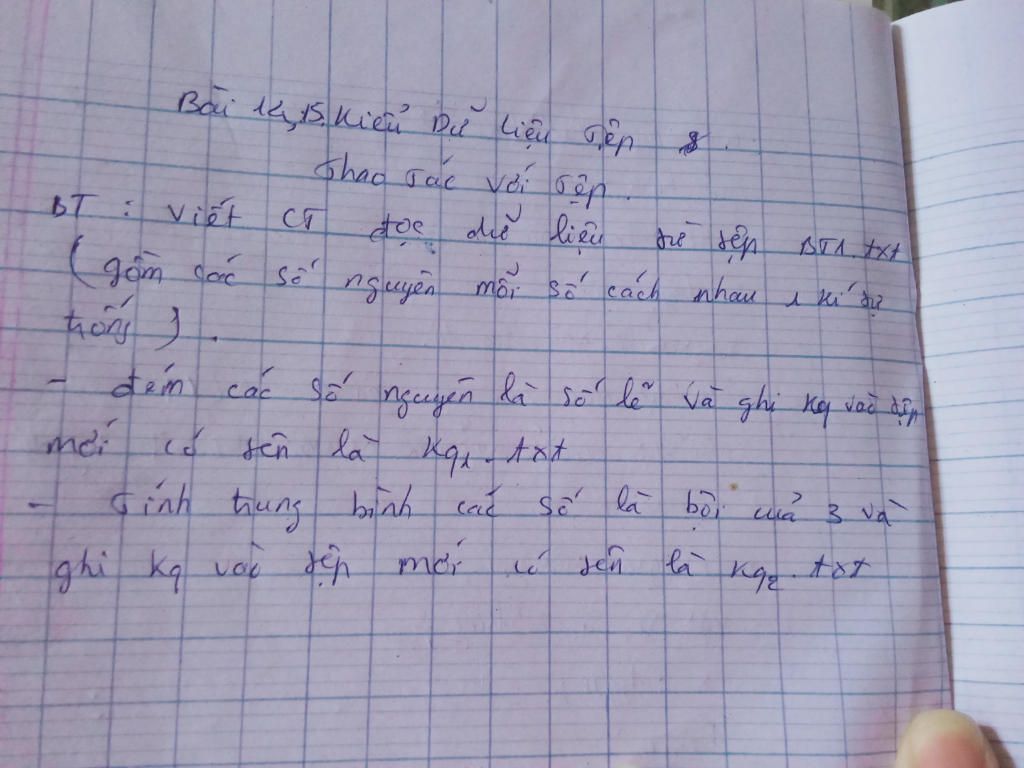 Bài 14,15. Kiểu Dữ liệu Tệp &.
Thao Tác với Tệp.
BT : viết CT đọc dữ liệu từ tệp BT1.txt
( gồm các số nguyên mỗi số cách nhau 1 kí tự
trống ).
- đếm các số nguyên là số lẽ và ghi kq vào tệp
mới có tên là kq1.txt
- Tính trung bình các số là bội của 3 và
ghi kq vào tệp mới có tên là kq2.txt